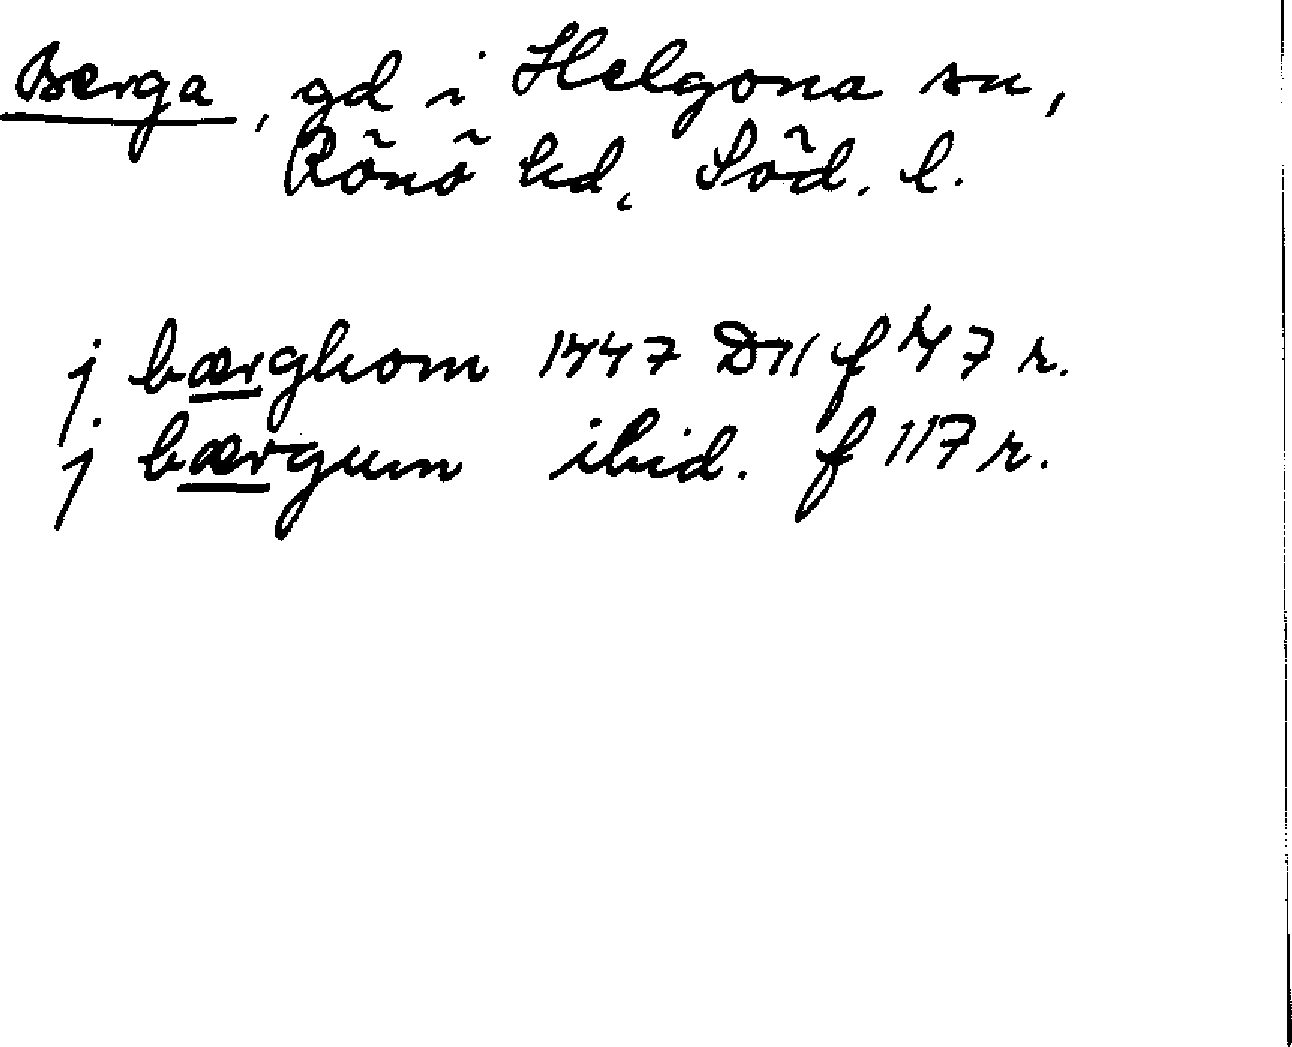 Berga, gd i Helgona sn,
Rönö hd, Söd. l.
j bærghom 1447 D11 f 47 r.
j bærgum ibid. f 117 r.